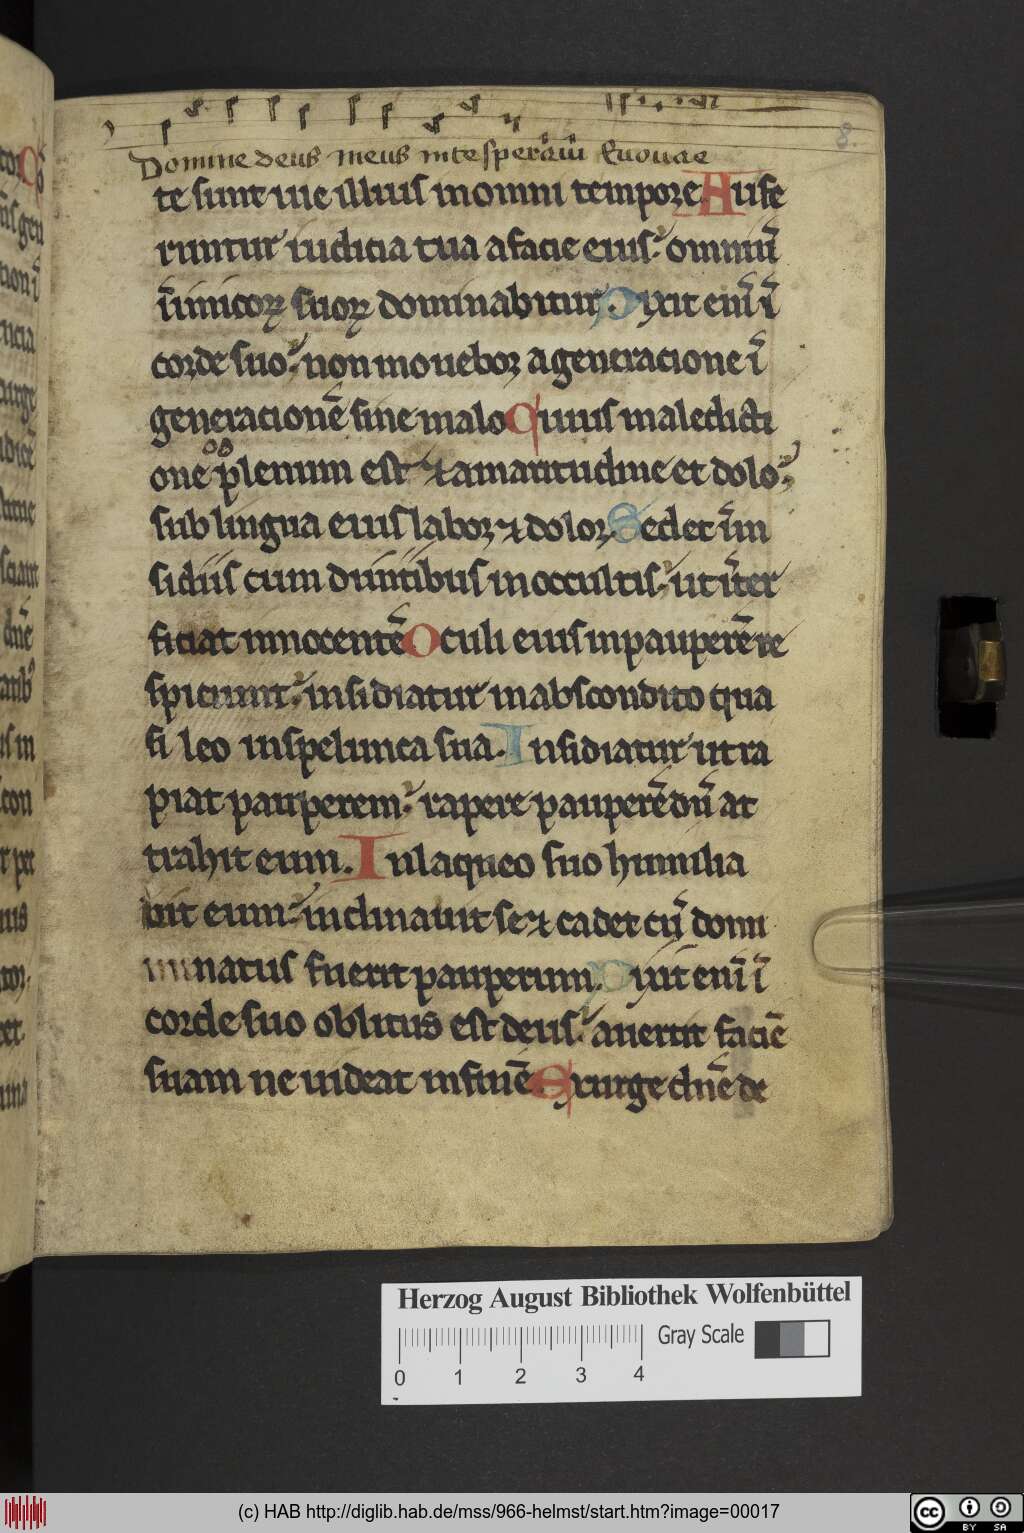 8.
Domine deus meus in te sperauī Euouae
te sunt uie illius in omni tempore Aufe
runtur iudicia tua a facie eius omniū
īimicoꝝ suoꝝ dominabitur. Dixit eni̅ ī
corde suo non mouebor a generacione ī
generacionē sine malo Cuius maledicti
one plenum est ⁊ amaritudine et dolo
sub lingua eius labor ⁊ dolor Sedet īin
sidiis cum diuitibus in occultis ut īter
ficiat innocentē Oculi eius in pauperē re
spiciunt insidiatur in abscondito qua
si leo in spelunca sua. Insidiatur ut ra
piat pauperem rapere pauperē dū at
trahit eum. In laqueo suo humilia
bit eum inclinauit se ⁊ cadet cū domi
minatus fuerit pauperum. Dixit eni̅ ī
corde suo oblitus est deus auertit faciē
suam ne uideat in finē. Exurge dn̄e de
Herzog August Bibliothek Wolfenbüttel
Gray Scale
0 1 2 3 4
(c) HAB http://diglib.hab.de/mss/966-helmst/start.htm?image=00017
cc BY SA